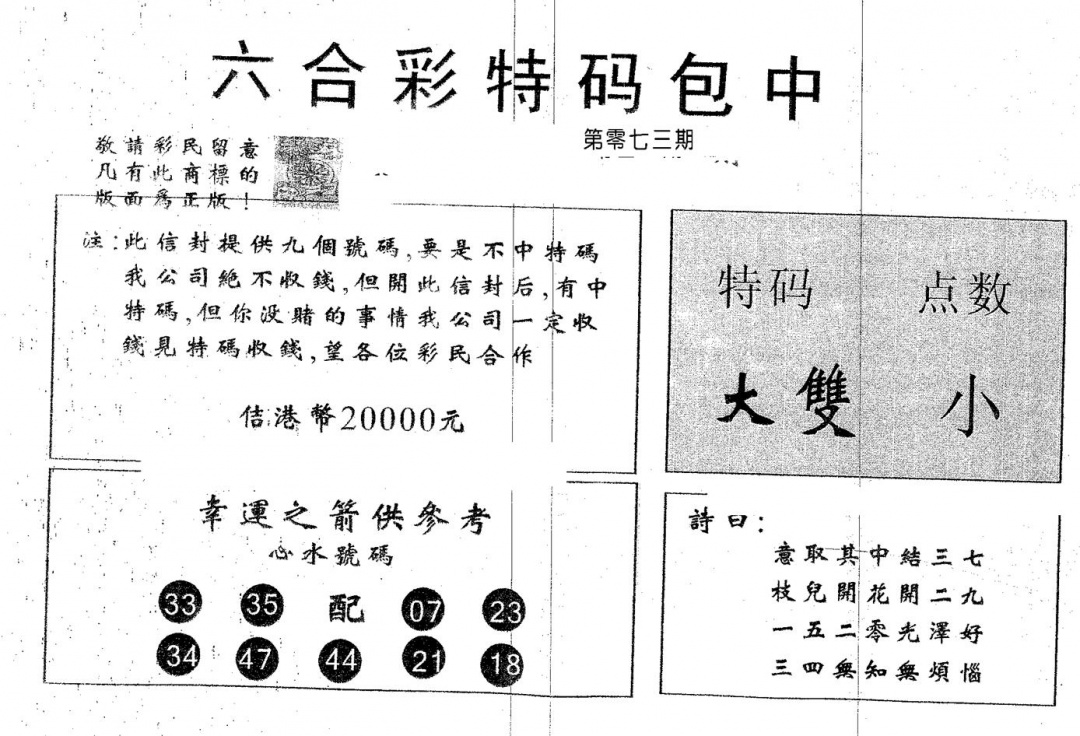 六合彩特码包中
第零七三期
敬請彩民留意
凡有此商標的
版面為正版！
注:此信封提供九個號碼,要是不中特碼
我公司絶不收錢,但開此信封后,有中
特碼,但你没賭的事情我公司一定收
錢見特碼收錢,望各位彩民合作
佶港幣20000元
特码 点数
大雙 小
幸運之箭供參考
心水號碼
33 35 配 07 23
34 47 44 21 18
詩曰:
意取其中結三七
枝兒開花開二九
一五二零光澤好
三四無知無煩惱